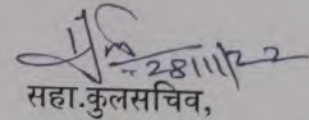 28/11/22
सहा.कुलसचिव,